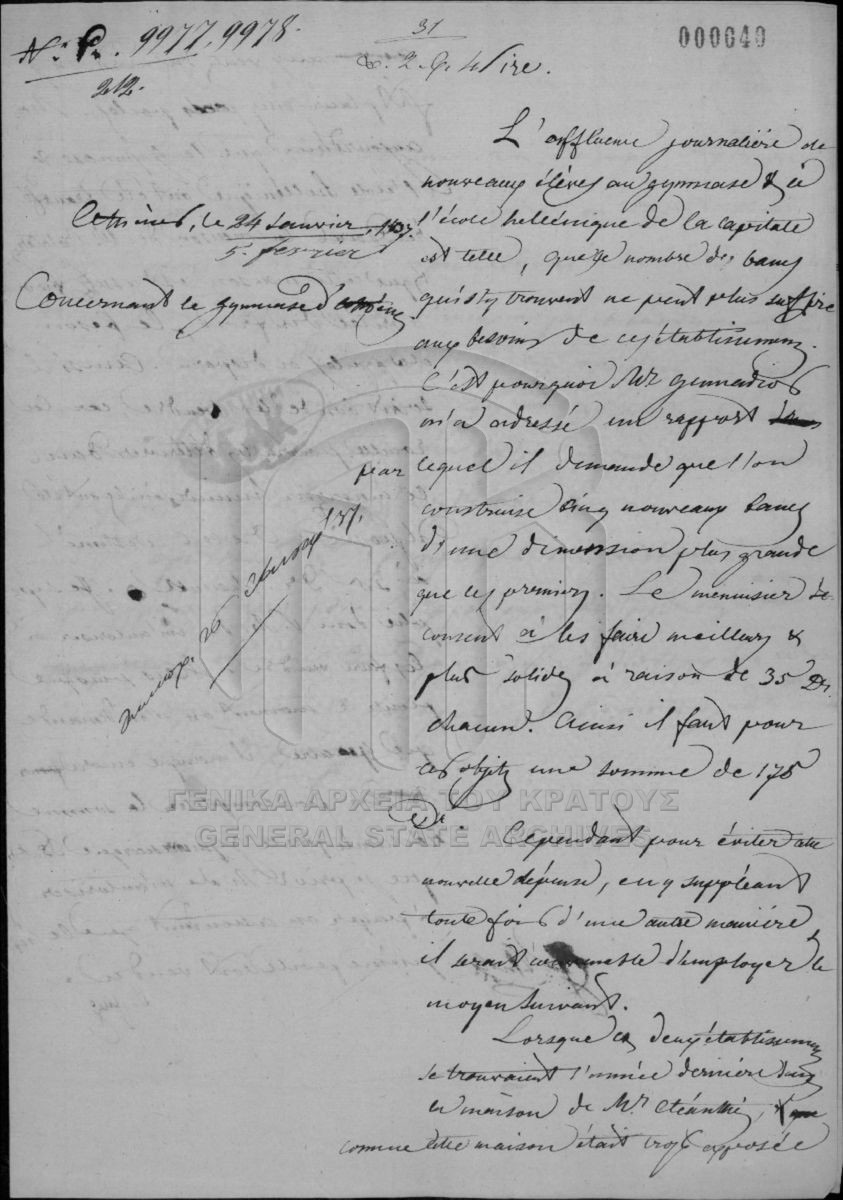 N. P. 9977, 9978.
212.
31
2. 4 Sire.
000040
Athènes, le 24 Janvier, 1837.
5. février
Concernant le gymnase d'
L'affluence journalière de
nouveaux élèves au gymnase & à
l'école hellénique de la capitale
est telle, que le nombre des bancs
qui s'y trouvent ne peut plus suffire
aux besoins de ces établissemens.
C'est pourquoi Mr Gennadios
m'a adressé un rapport
par lequel il demande que l'on
construise cinq nouveaux bancs
d'une dimension plus grande
que les premiers. Le menuisier
consent à les faire meilleurs &
plus solides à raison de 35 Dr.
chacun. Ainsi il faut pour
ces objets une somme de 175
Dr. Cependant pour éviter cette
nouvelle dépense, en y suppléant
toute fois d'une autre manière,
il serait convenable d'employer le
moyen suivant.
Lorsque ces deux établissemens
se trouvaient l'année dernière dans
la maison de Mr. Cléanthe,
comme cette maison était trop exposée
26 37.
ΓΕΝΙΚΑ ΑΡΧΕΙΑ ΤΟΥ ΚΡΑΤΟΥΣ
GENERAL STATE ARCHIVES